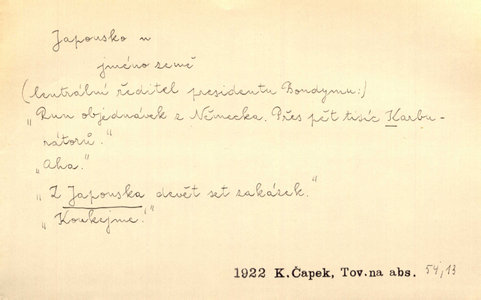 Japonsko n
jméno země
(Centrální ředitel presidentu Bondymu:)
"Run objednávek z Německa. Přes pět tisíc Karbu-
rátorů."
"Aha."
"Z Japonska devět set zakázek."
"Koukejme!"
1922 K.Čapek, Tov.na abs. 54,13